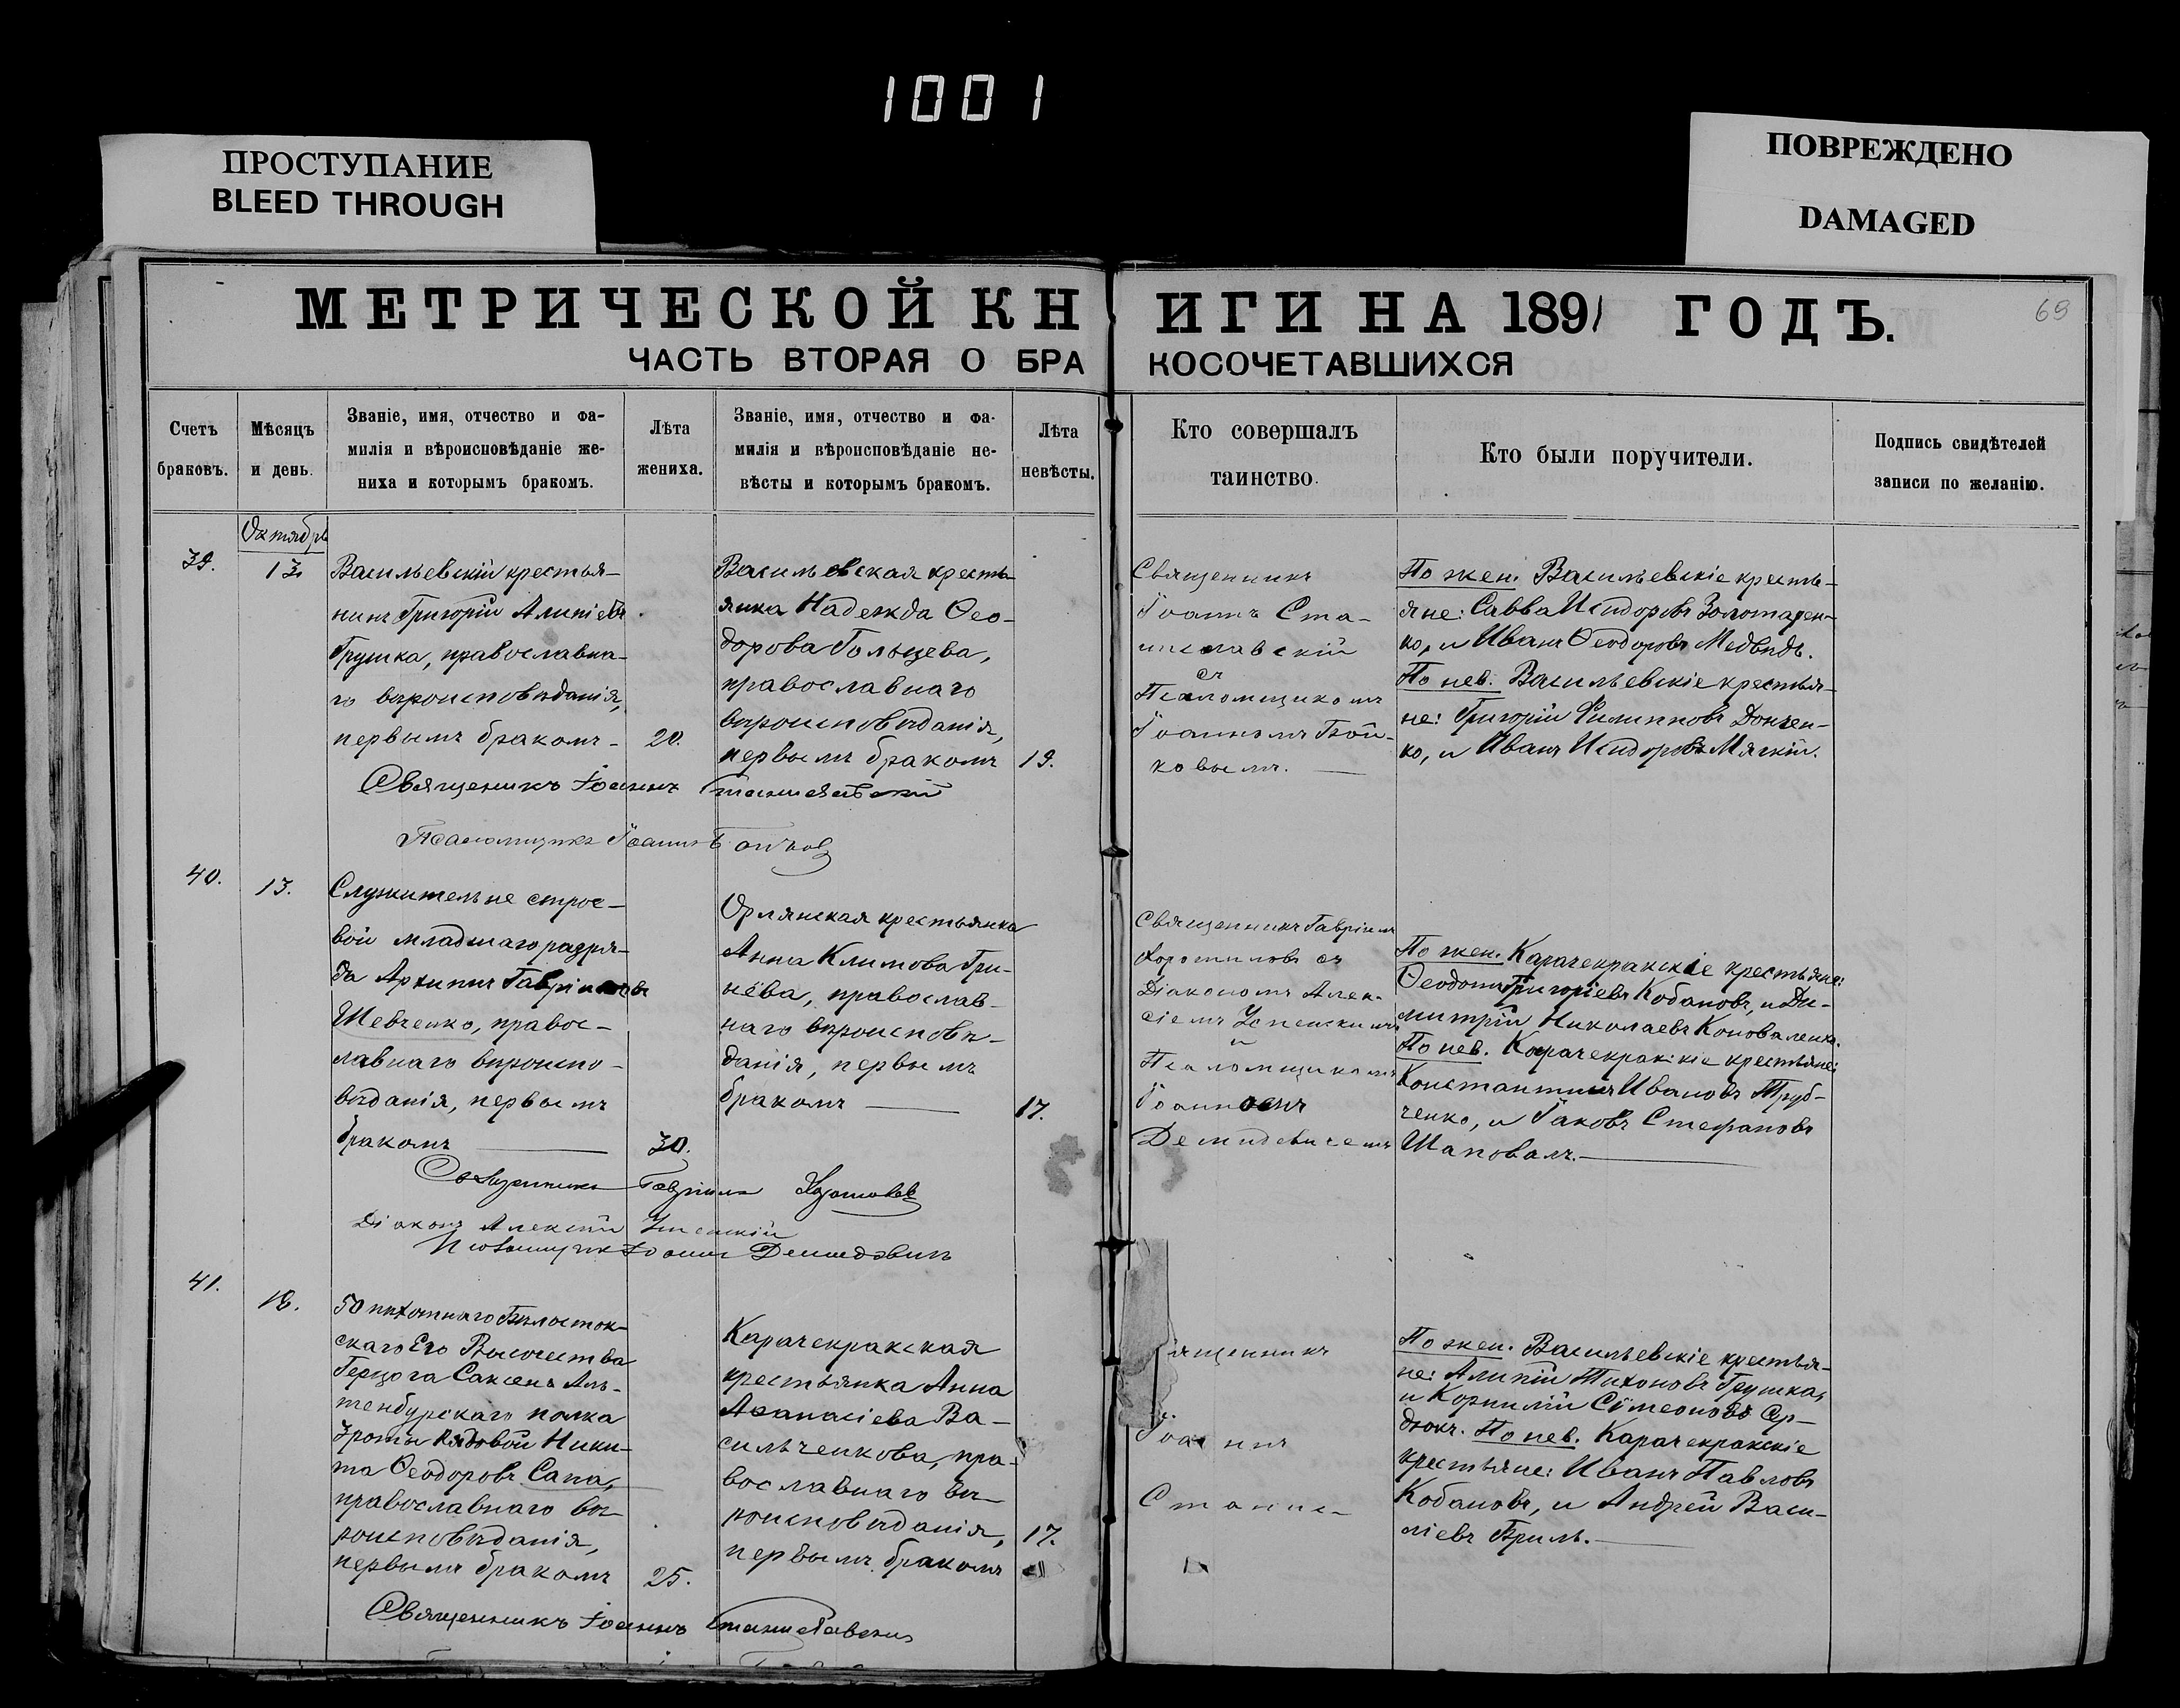 1001
ПРОСТУПАНИЕ
BLEED THROUGH
ПОВРЕЖДЕНО
DAMAGED
69
МЕТРИЧЕСКОЙ КНИГИ НА 1891 ГОДЪ.
ЧАСТЬ ВТОРАЯ О БРАКОСОЧЕТАВШИХСЯ
Счетъ
браковъ.
Мѣсяцъ
и день.
Званіе, имя, отчество и фа-
милія и вѣроисповѣданіе же-
ниха и которымъ бракомъ.
Лѣта
жениха.
Званіе, имя, отчество и фа-
милія и вѣроисповѣданіе не-
вѣсты и которымъ бракомъ.
Лѣта
невѣсты.
Кто совершалъ
таинство.
Кто были поручители.
Подпись свидѣтелей
записи по желанію.
Октябрь
39.
13.
Васильевскій крестья-
нинъ Григорій Алипіевъ
Грушка, православна-
го вѣроисповѣданія,
первымъ бракомъ-
20.
Васильевская кресть-
янка Надежда Ѳео-
дорова Гольцева,
православнаго
вѣроисповѣданія,
первымъ бракомъ
19.
Священникъ
Іоаннъ Ста-
ниславскій
съ
Псаломщикомъ
Іоанномъ Бой-
ковымъ.
По жен. Васильевскіе кресть-
яне: Савва Исидоровъ Золотарен-
ко, и Иванъ Ѳеодоровъ Медвидь.
По нев. Васильевскіе крестья-
не: Григорій Филипповъ Донцен-
ко, и Иванъ Исидоровъ Мягкій.
Священникъ Іоаннъ Станиславскій
Псаломщикъ Іоаннъ Бойковъ
40.
13.
Служитель не строе-
вой младшаго разря-
да Архипъ Гавріиловъ
Шевченко, правос-
лавнаго вѣроиспо-
вѣданія, первымъ
бракомъ
30.
Орлянская крестьянка
Анна Климова Гри-
нёва, православ-
наго вѣроисповѣ-
данія, первымъ
бракомъ
17.
Священникъ Гавріилъ
Хорошиловъ съ
Діакономъ Алек-
сіемъ Успенскимъ
и
Псаломщикомъ
Іоанномъ
Демидевичемъ
По жен. Карачекракскіе крестьяне:
Ѳеодотъ Григоріевъ Кобановъ, и Ди-
митрій Николаевъ Коноваленко.
По нев. Карачекракскіе крестьяне:
Константинъ Ивановъ Труб-
ченко, и Іаковъ Стефановъ
Шаповалъ.
Священникъ Гавріилъ
Діаконъ Алексій Успенскій
Псаломщикъ Іоаннъ Демидовичъ
41.
18.
50 пѣхотнаго Бѣлосток-
скаго Его Высочества
Герцога Саксенъ Аль-
тенбургскаго полка
3 роты Рядовой Ники-
та Ѳеодоровъ Сапа,
православнаго вѣ-
роисповѣданія,
первымъ бракомъ
25.
Карачекракская
крестьянка Анна
Аѳанасіева Ва-
сильченкова, пра-
вославнаго вѣ-
роисповѣданія,
первымъ бракомъ
17.
ященникъ
Іоаннъ
Станис-
По жен. Васильевскіе крестья-
не: Алипій Тихоновъ Грушка,
и Корнилій Сѵмеоновъ Сер-
дюкъ. По нев. Карачекракскіе
крестьяне: Иванъ Павловъ
Кобановъ, и Андрей Васи-
ліевъ Бриль.
Священникъ Іоаннъ Станиславскій